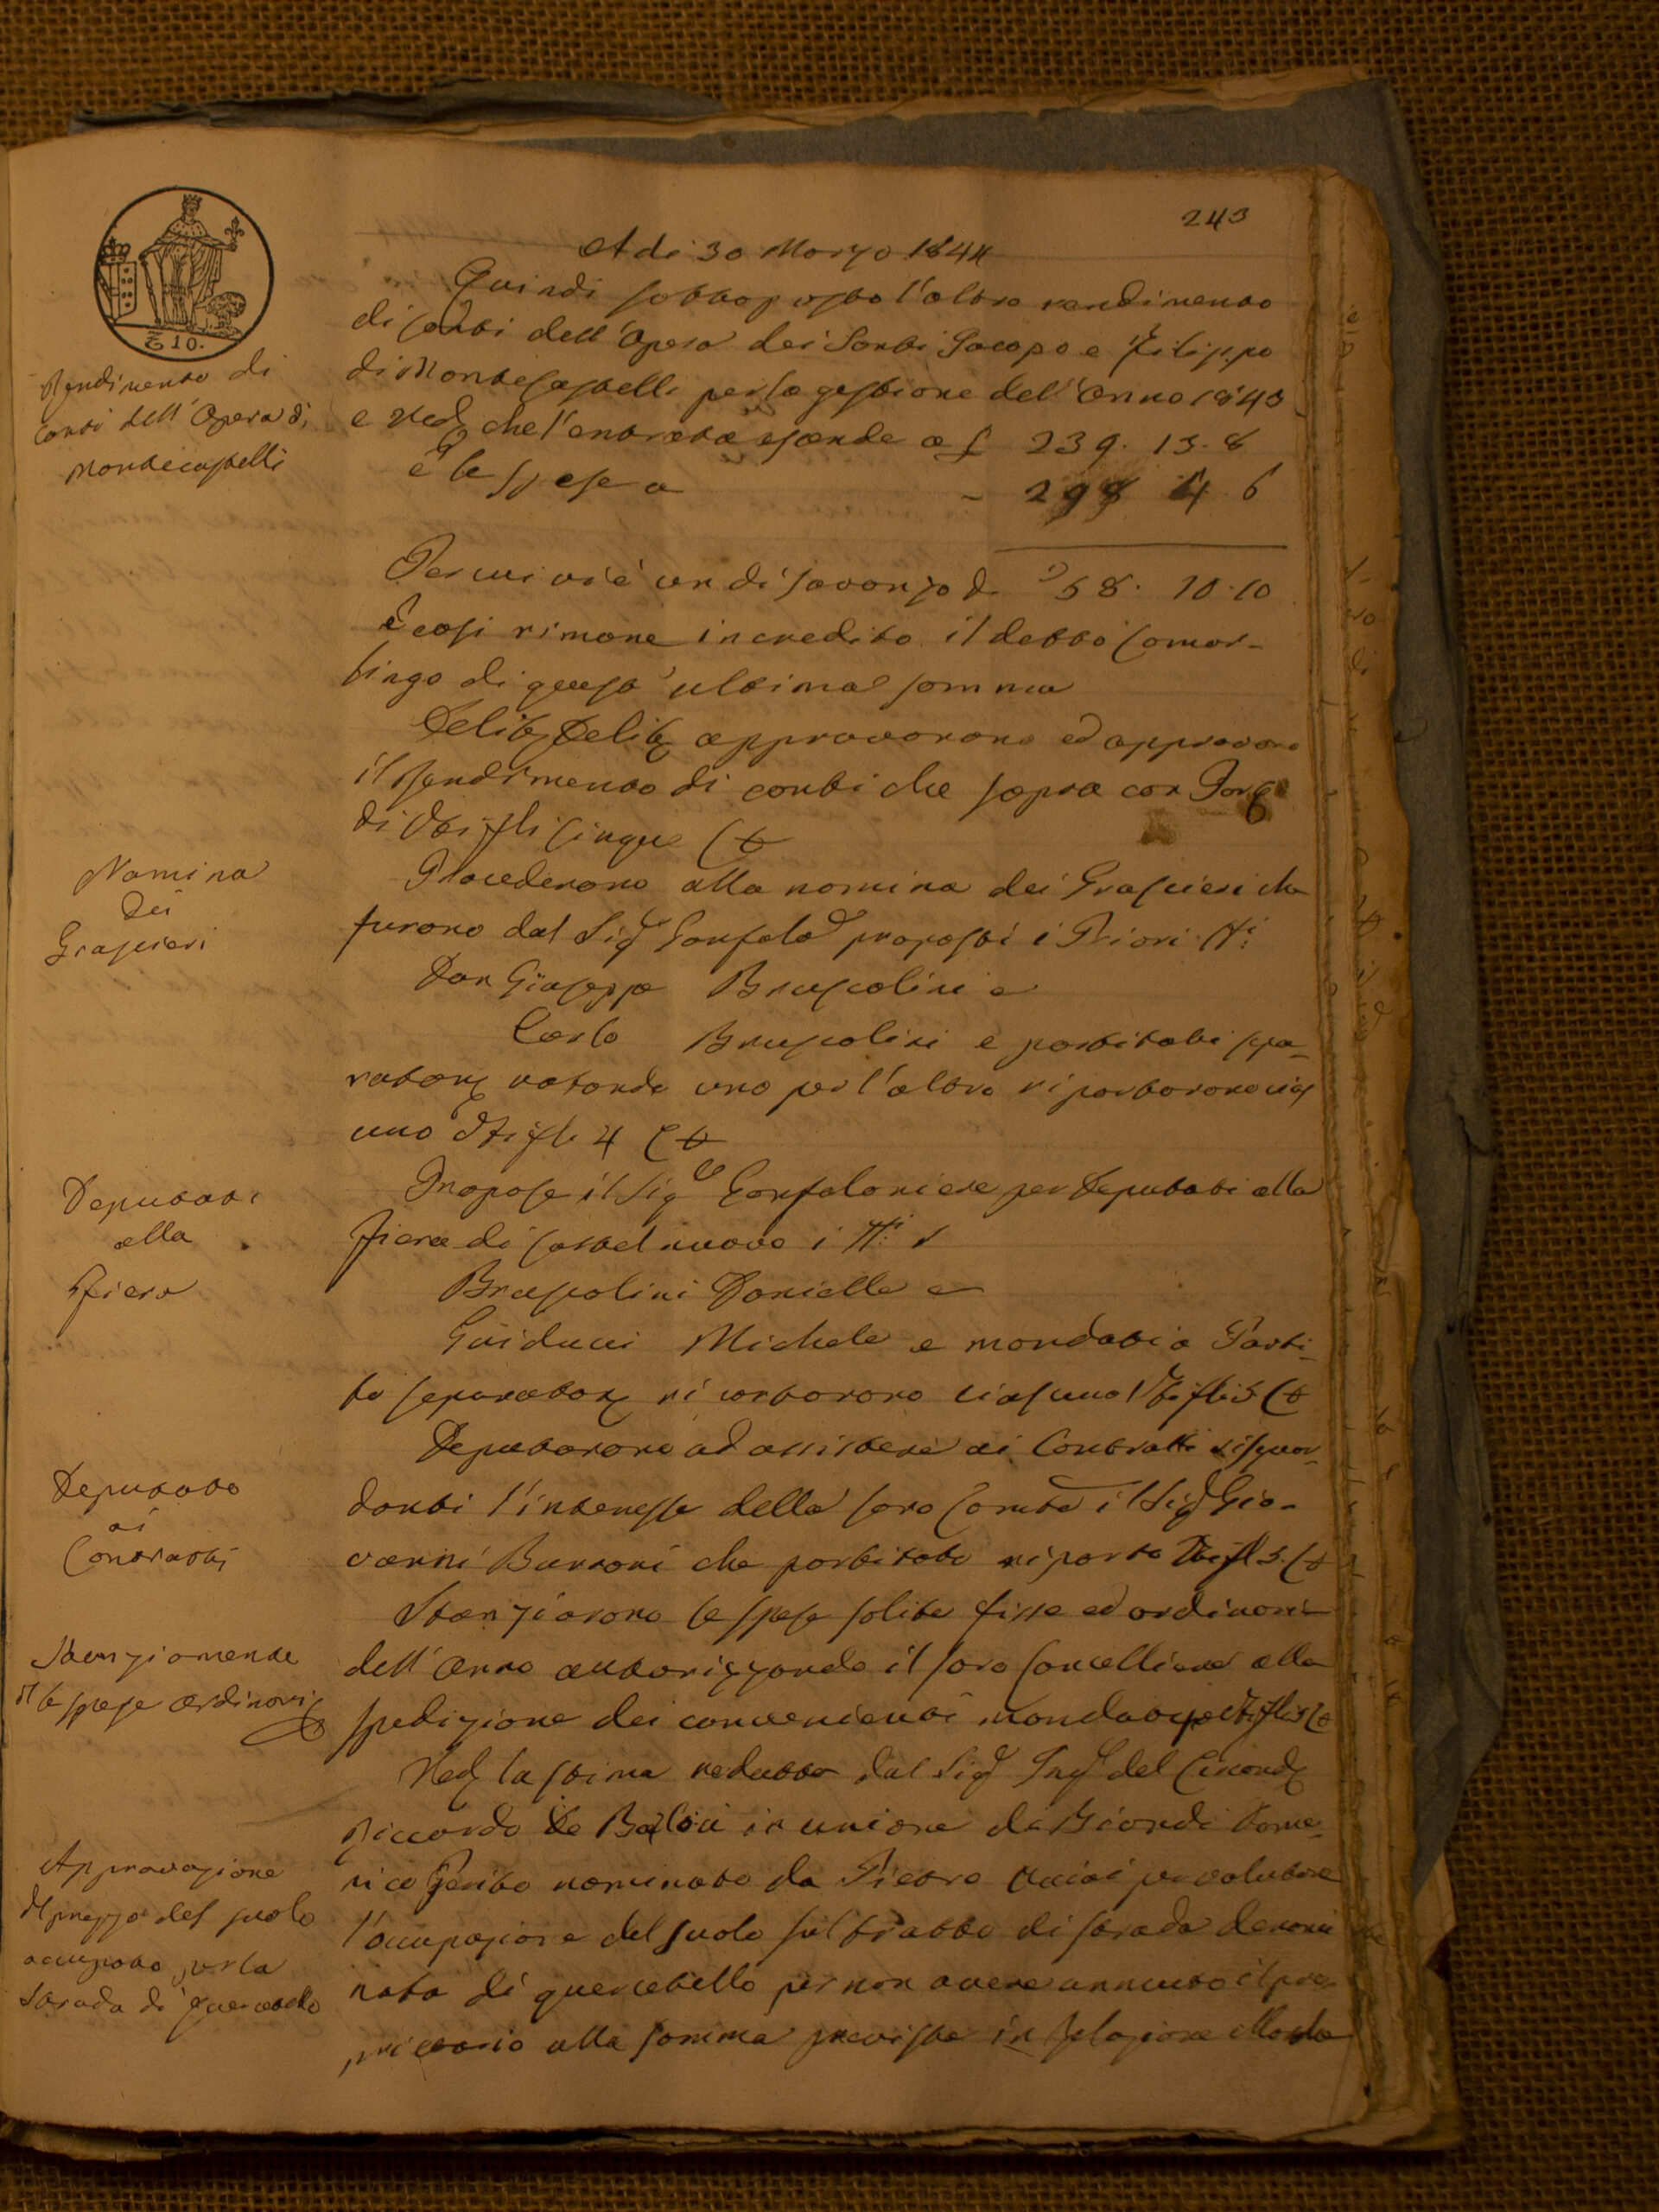 243
A di 30 Marzo 1844
Quindi sottoposto l'altro rendimento
di conti dell'Opera dei Santi Jacopo e Filippo
di Montecastelli per la gestione dell'Anno 1843
e Ved che l'entrata ascende a £ 239. 13. 8
e le spese a - 298 4 6
Per cui vi è un disavanzo d. 58. 10. 10
E così rimane in credito il detto Camar-
lingo di quest'ultima somma
Delib Delib approvarono ed approvano
il rendimento di conti che sopra con Par
di Voti fli cinque C
Procederono alla nomina dei Grascieri che
furono dal Sig Gonfalo proposti i Priori
Don Giuseppe Bruscolini e
Carlo Bruscolini e partitati sepa-
ratam votando uno per l'altro riportarono cias
uno fli 4 C
Propose il Sig Gonfaloniere per Deputati alla
Fiera di Castelnuovo i
Bruscolini Danielle e
Guiducci Michele e mandati a Parti-
to separatam riportarono ciascuno
Deputarono ad assistere ai Contratti risguar-
danti l'interesse della loro Comtà il Sig Gio-
vanni che partitato riportò
Stanziarono le spese solite fisse ed ordinarie
dell'Anno autorizzando il loro Cancelliere alla
spedizione dei convenienti mandati per
Ved la stima redatta dal Sig Ing del Circond
Riccardo in unione di Biondi Dome-
nico Perito nominato da Pietro per valutare
l'occupazione del suolo sul tratto di strada denomi
nata di quercetello per non avere annuito il pro-
prietario alla somma prevista in relazione alla
Rendimento di
Conti dell'Opera di
Montecastelli
Nomina
Dei
Grascieri
Deputati
alla
Fiera
Deputato
ai
Contratti
Stanziamento
d le spese ordinarie
Approvazione
del prezzo del suolo
occupato per la
Strada di quercetello
10.